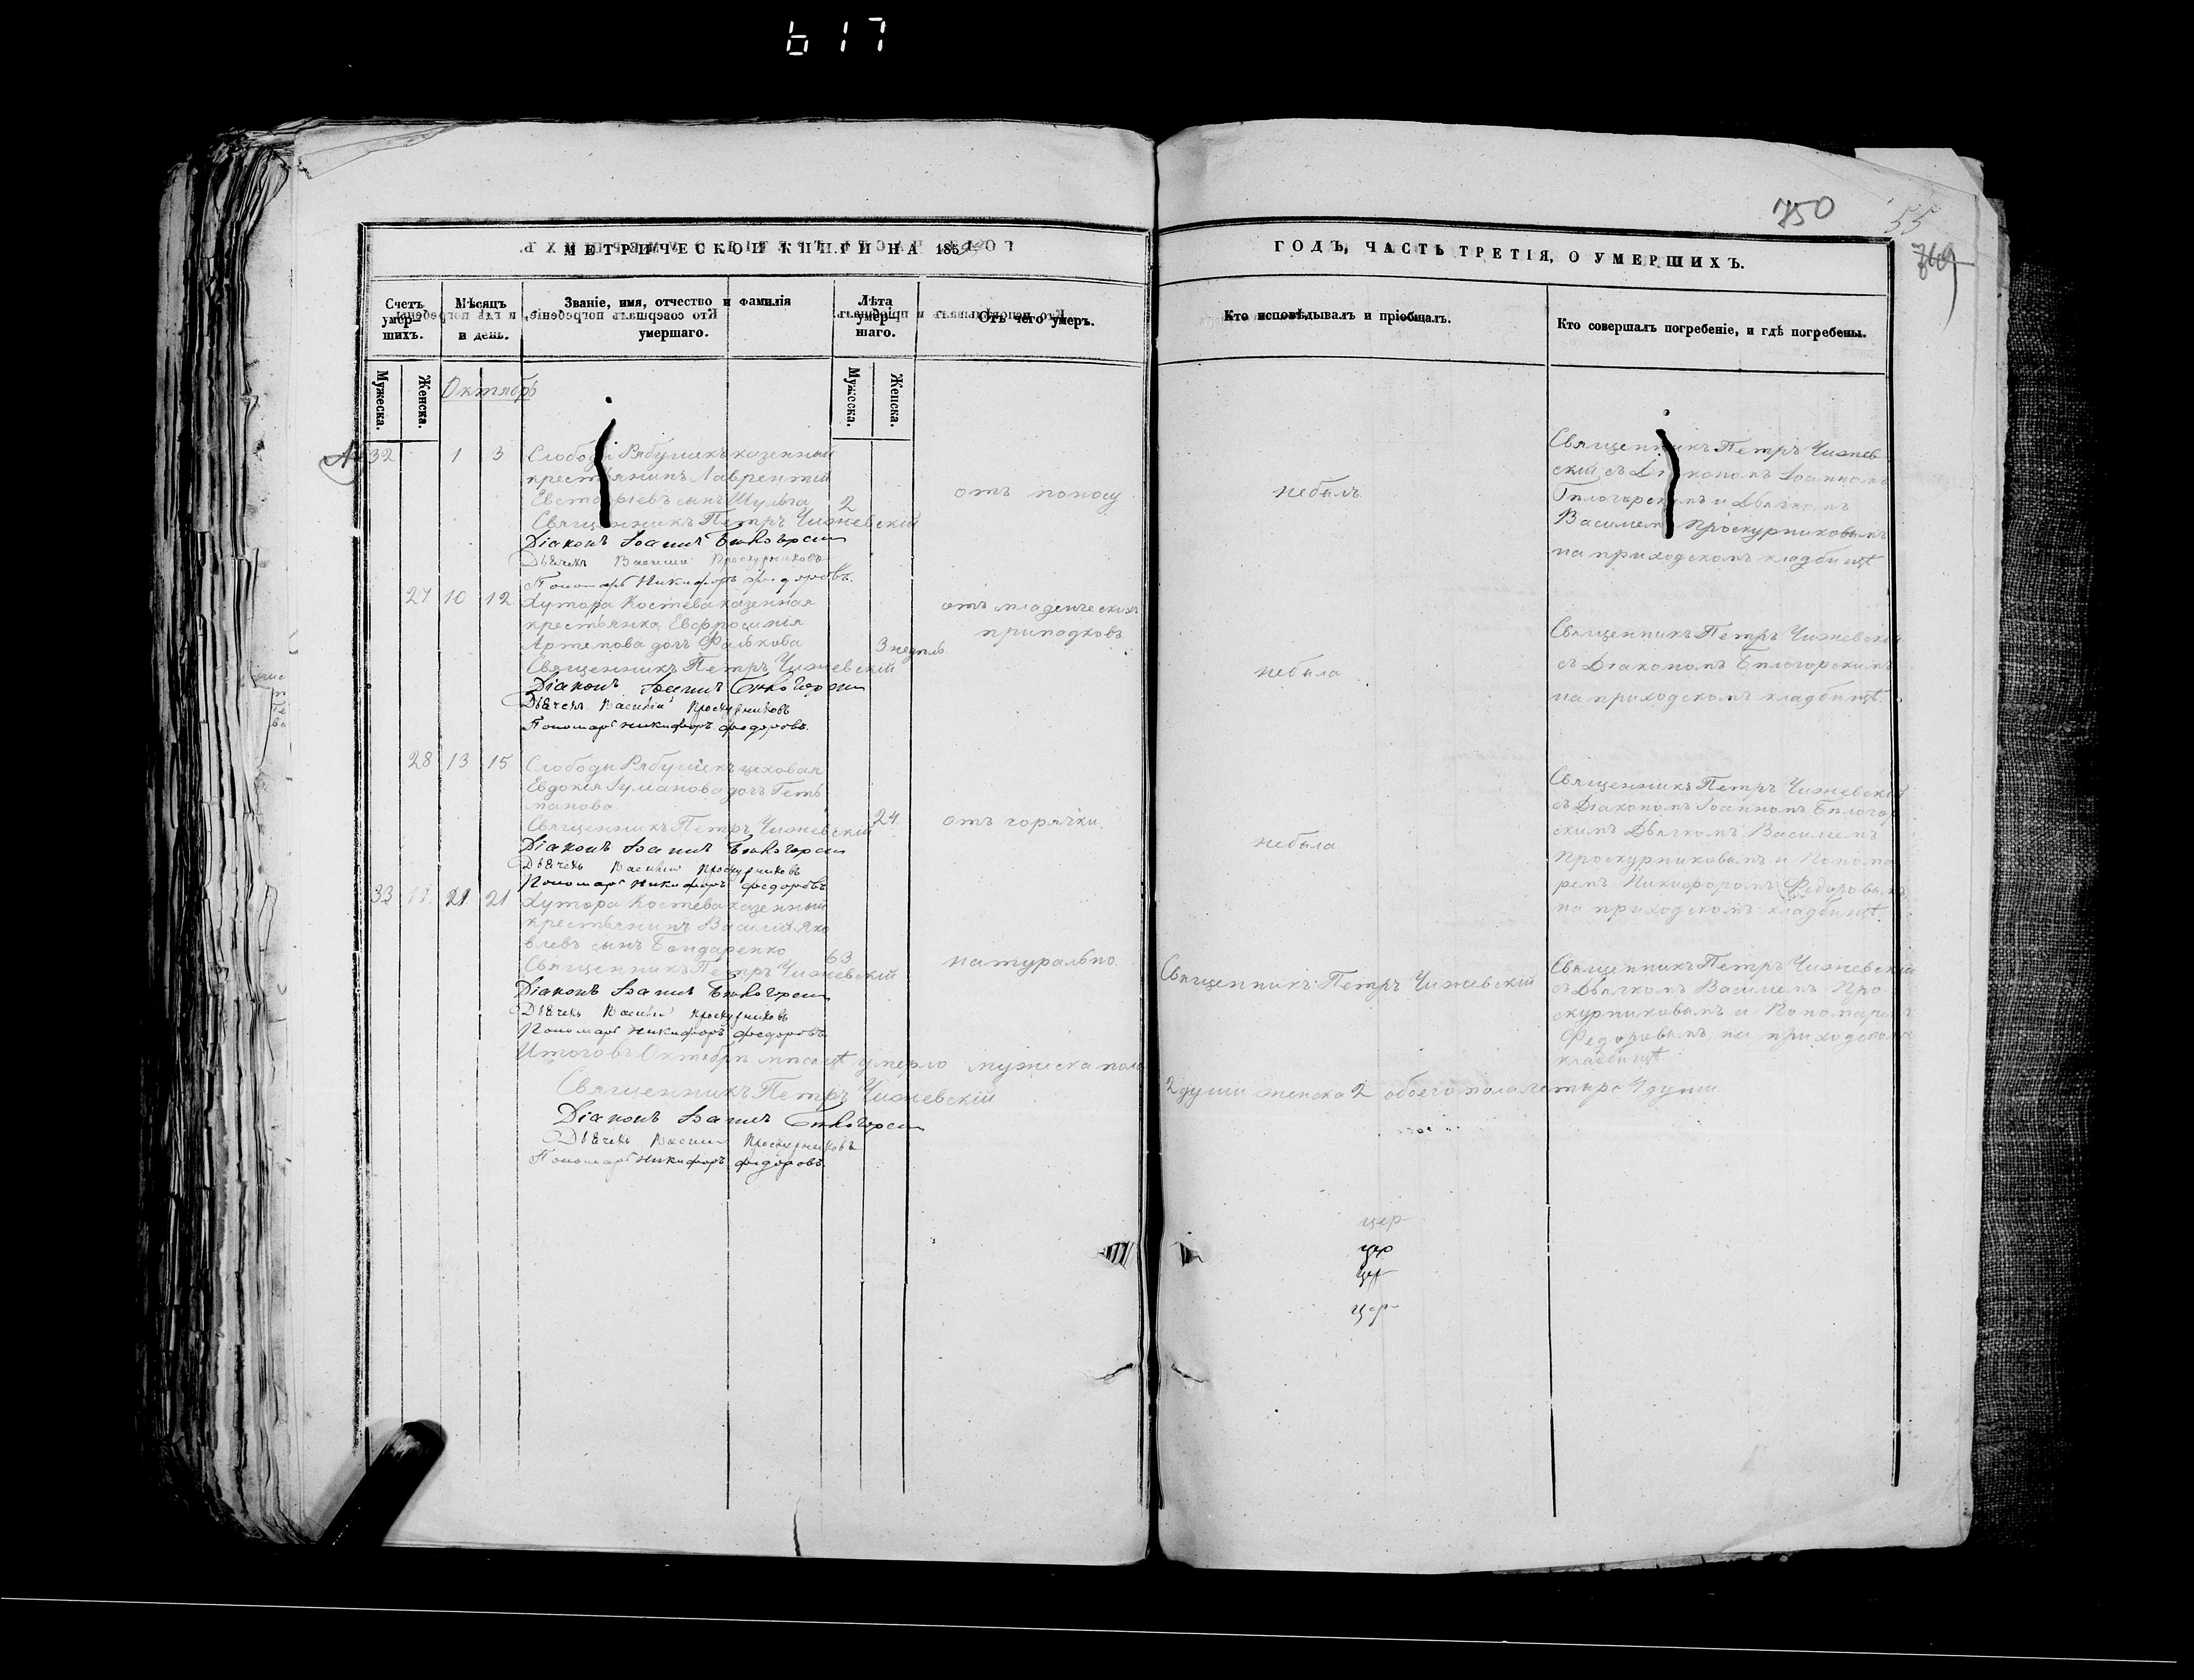 617
750
55
769
МЕТРИЧЕСКОЙ КНИГИ НА 185
ГОДЪ, ЧАСТЬ ТРЕТІЯ, О УМЕРШИХЪ.
Счетъ умер-шихъ.
Мѣсяцъ и день.
Званіе, имя, отчество и фамилія умершаго.
Лѣта умер-шаго.
Отъ чего умеръ.
Кто исповѣдывалъ и пріобщалъ.
Кто совершалъ погребеніе, и гдѣ погребены.
Мужеска.
Женска.
Мужеска.
Женска.
Октябрь
32 1 3
Слободы Рябушекъ казенный
крестьянинъ Лаврентій
Евстафьевъ сынъ Шульга
2
отъ поносу
небылъ
Священникъ Петръ Чижевскій
Діаконъ Іоаннъ Бѣлогорскій
Дьячекъ Василій Проскурниковъ
Пономарь Никифоръ Федоровъ.
Священникъ Петръ Чижев
скій съ Діакономъ Іоанномъ
Бѣлогорскимъ и Дьячкомъ
Василіемъ Проскурниковымъ
на приходскомъ кладбищѣ
27 10 12
Хутора Костева казенная
крестьянка Евфросинія
Артемова дочь Фалькова
3 недѣль
отъ младенческихъ
припадковъ
небыла
Священникъ Петръ Чижевскій
Діаконъ Іоаннъ Бѣлогорскій
Дьячекъ Василій Проскурниковъ
Пономарь Никифоръ Федоровъ.
Священникъ Петръ Чижевскій
съ Діакономъ Бѣлогорскимъ
на приходскомъ кладбищѣ.
28 13 15
Слободы Рябушекъ цеховая
Евдокія Гуманова дочь Геть
манова
24
отъ горячки.
небыла
Священникъ Петръ Чижевскій
Діаконъ Іоаннъ Бѣлогорскій
Дьячекъ Василій Проскурниковъ
Пономарь Никифоръ Федоровъ
Священникъ Петръ Чижевскій
съ Діакономъ Іоанномъ Бѣлогор
скимъ Дьячкомъ Василіемъ
Проскурниковымъ и Понома
ремъ Никифоромъ Федоровымъ
на приходскомъ кладбищѣ.
33 21 21
Хутора Костева казенный
крестьянинъ Василій Яко
влевъ сынъ Бондаренко
63
натурально.
Священникъ Петръ Чижевскій
Священникъ Петръ Чижевскій
Діаконъ Іоаннъ Бѣлогорскій
Дьячекъ Василій Проскурниковъ
Пономарь Никифоръ Федоровъ
Священникъ Петръ Чижевскій
съ Дьячкомъ Василіемъ Про
скурниковымъ и Пономаремъ
Федоровымъ на приходскомъ
кладбищѣ
Итого въ Октябрѣ мѣсяцѣ умерло мужеска пола
2 души женска 2 обоего пола четыре 4 души
Священникъ Петръ Чижевскій
Діаконъ Іоаннъ Бѣлогорскій
Дьячекъ Василій Проскурниковъ
Пономарь Никифоръ Федоровъ.
цер
цер
цер
цер